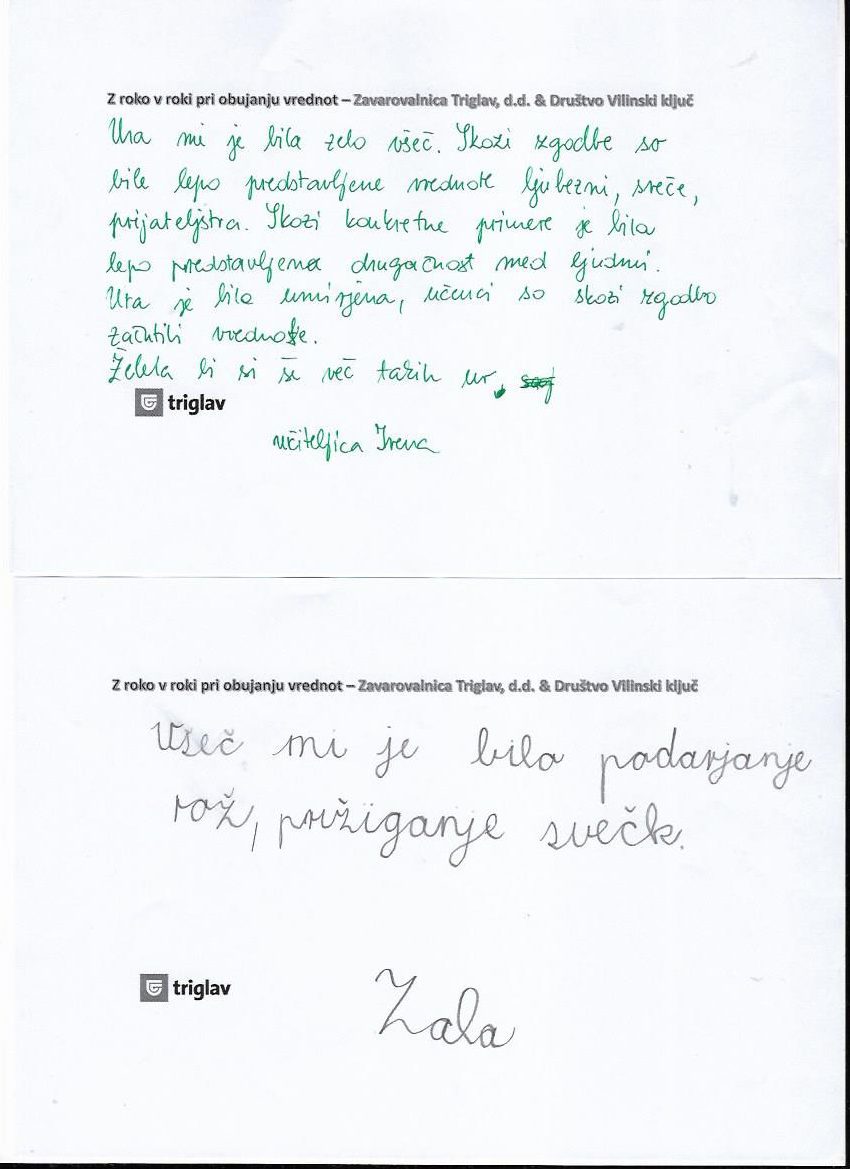 Z roko v roki pri obujanju vrednot – Zavarovalnica Triglav, d.d. & Društvo Vilinski ključ
Ura mi je bila zelo všeč. Skozi zgodbe so
bile lepo predstavljene vrednote ljubezni, sreče,
prijateljstva. Skozi konkretne primere je bila
lepo predstavljena drugačnost med ljudmi.
Ura je bila umirjena, učenci so skozi zgodbo
začutili vrednote.
Želela bi si še več takih ur.
triglav
učiteljica Irena
Z roko v roki pri obujanju vrednot – Zavarovalnica Triglav, d.d. & Društvo Vilinski ključ
Všeč mi je bilo podarjanje
rož, prižiganje svečk.
triglav
Zala